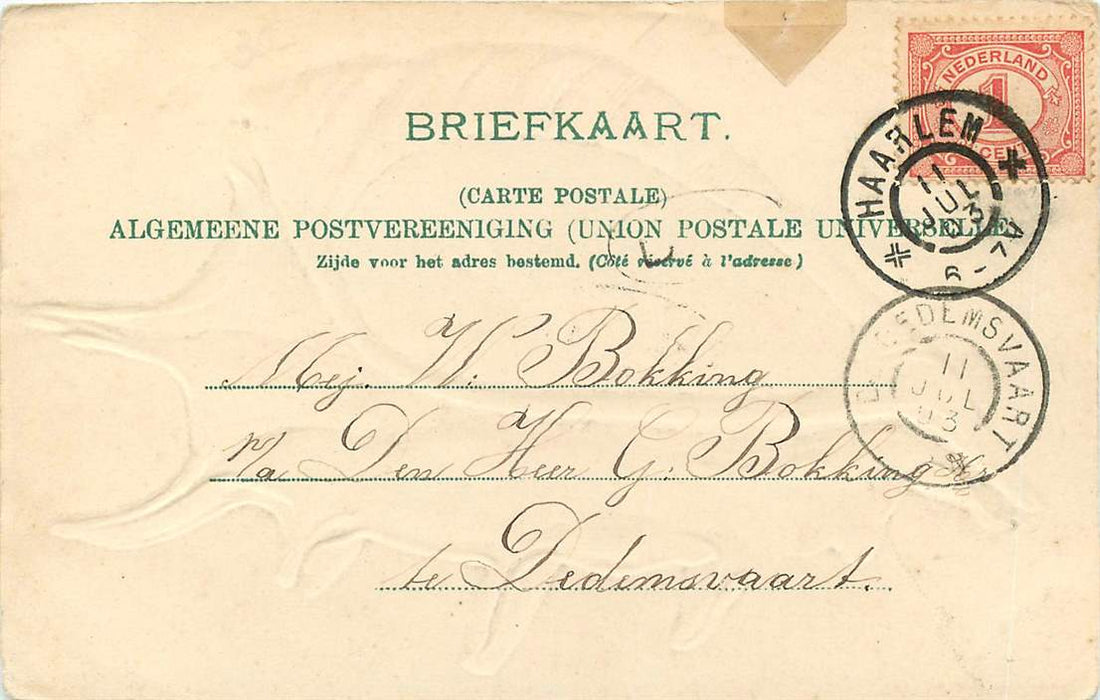 BRIEFKAART.
(CARTE POSTALE)
ALGEMEENE POSTVEREENIGING (UNION POSTALE UNIVERSELLE)
Zijde voor het adres bestemd. (Côté réservé à l'adresse)
NEDERLAND
1
CENT
HAARLEM
11
JUL
03
6-7V
DEDEMSVAART
11
JUL
03
Mej. W. Bokking
p/a Den Heer G. Bokking Hz.
te Dedemsvaart.